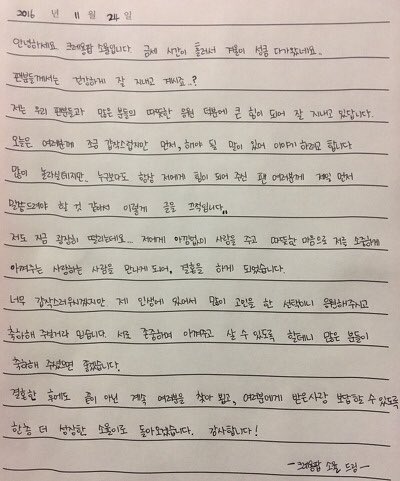 2016 년 11 월 24 일
안녕하세요. 크레용팝 소율입니다 금세 시간이 흘러서 겨울이 성큼 다가왔네요..
팬분들께서는 건강하게 잘 지내고 계시죠..?
저는 우리 팬분들과 많은 분들의 따뜻한 응원 덕분에 큰 힘이 되어 잘 지내고 있답니다.
오늘은 여러분께 조금 갑작스럽지만 먼저, 해야 될 말이 있어 이야기 하려고 합니다
많이 놀라실테지만.. 누구보다도 항상 저에게 힘이 되어 주신 팬 여러분께 제일 먼저
말씀드려야 할 것 같아서 이렇게 글을 끄적입니다..
저도 지금 굉장히 떨리는데요... 저에게 아낌없이 사랑을 주고 따뜻한 마음으로 저를 소중하게
아껴주는 사랑하는 사람을 만나게 되어, 결혼을 하게 되었습니다.
너무 갑작스러우시겠지만 제 인생에 있어서 많이 고민을 한 선택이니 응원해주시고
축하해 주실거라 믿습니다. 서로 존중하며 아껴주고 살 수 있도록 할테니 많은 분들이
축하해 주셨으면 좋겠습니다.
결혼한 후에도 끝이 아닌 계속 여러분을 찾아 뵙고, 여러분에게 받은사랑 보답할 수 있도록
한층 더 성장한 소율이로 돌아오겠습니다. 감사합니다!
- 크레용팝 소율 드림 -